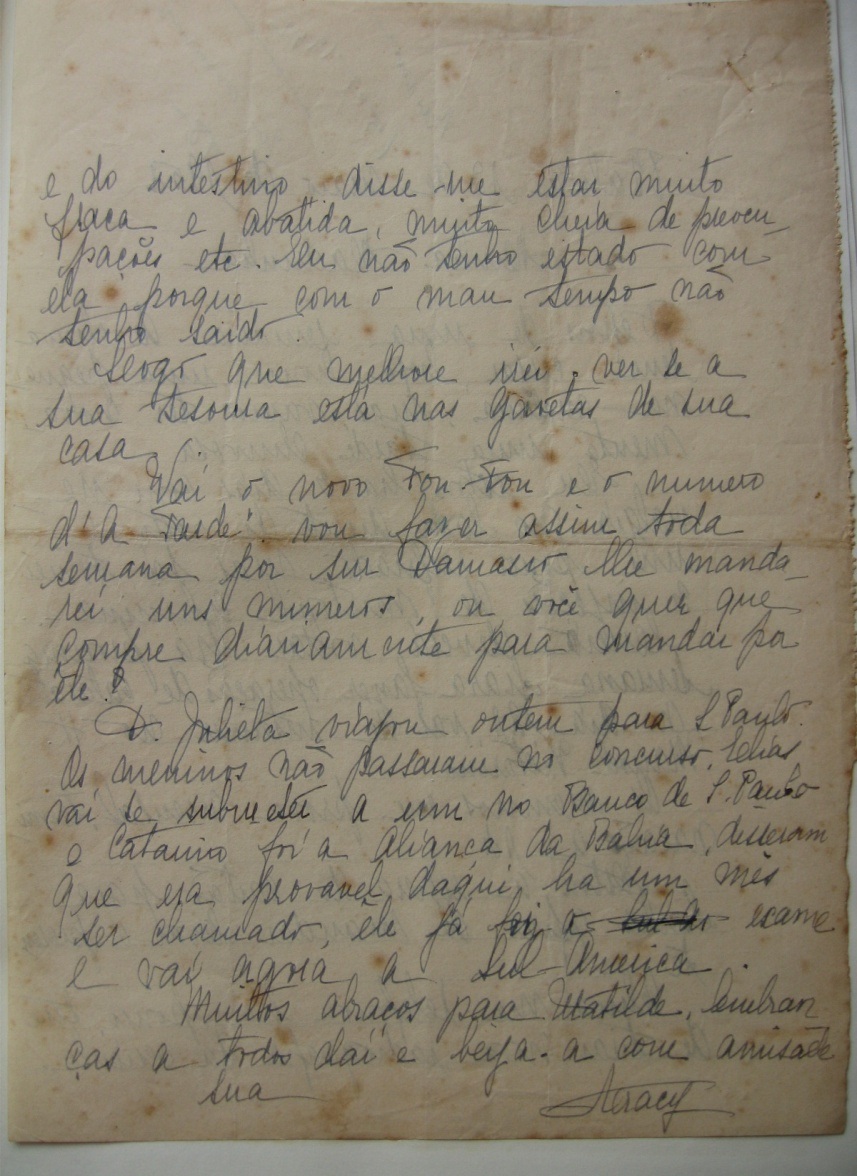 e do intestino disse-me estar muito
fraca e abatida, muito cheia de preocu-
pações etc. Eu não tenho estado com
ela porque com o mau tempo não
tenho saído.
Logo que melhore irei ver se a
sua tesoura está nas gavetas de sua
casa.
Vai o novo Fon-Fon e o numero
d'A Tarde. vou fazer assim toda
semana por sur Damasio lhe manda-
rei uns numeros, ou você quer que
compre diariamente para mandar por
êle?
D. Julieta viajou ontem para S. Paulo.
Os meninos não passaram no concurso,
vai se submeter a um no Banco de S. Paulo
o Catarino foi a Aliança da Bahia, disseram
que era provavel daqui ha um mês
ser chamado, êle já fez o exame
e vai agora a Sul-America.
Muitos abraços para Matilde, lembran-
ças a todos daí e beija-a com amisade
sua
Aracy